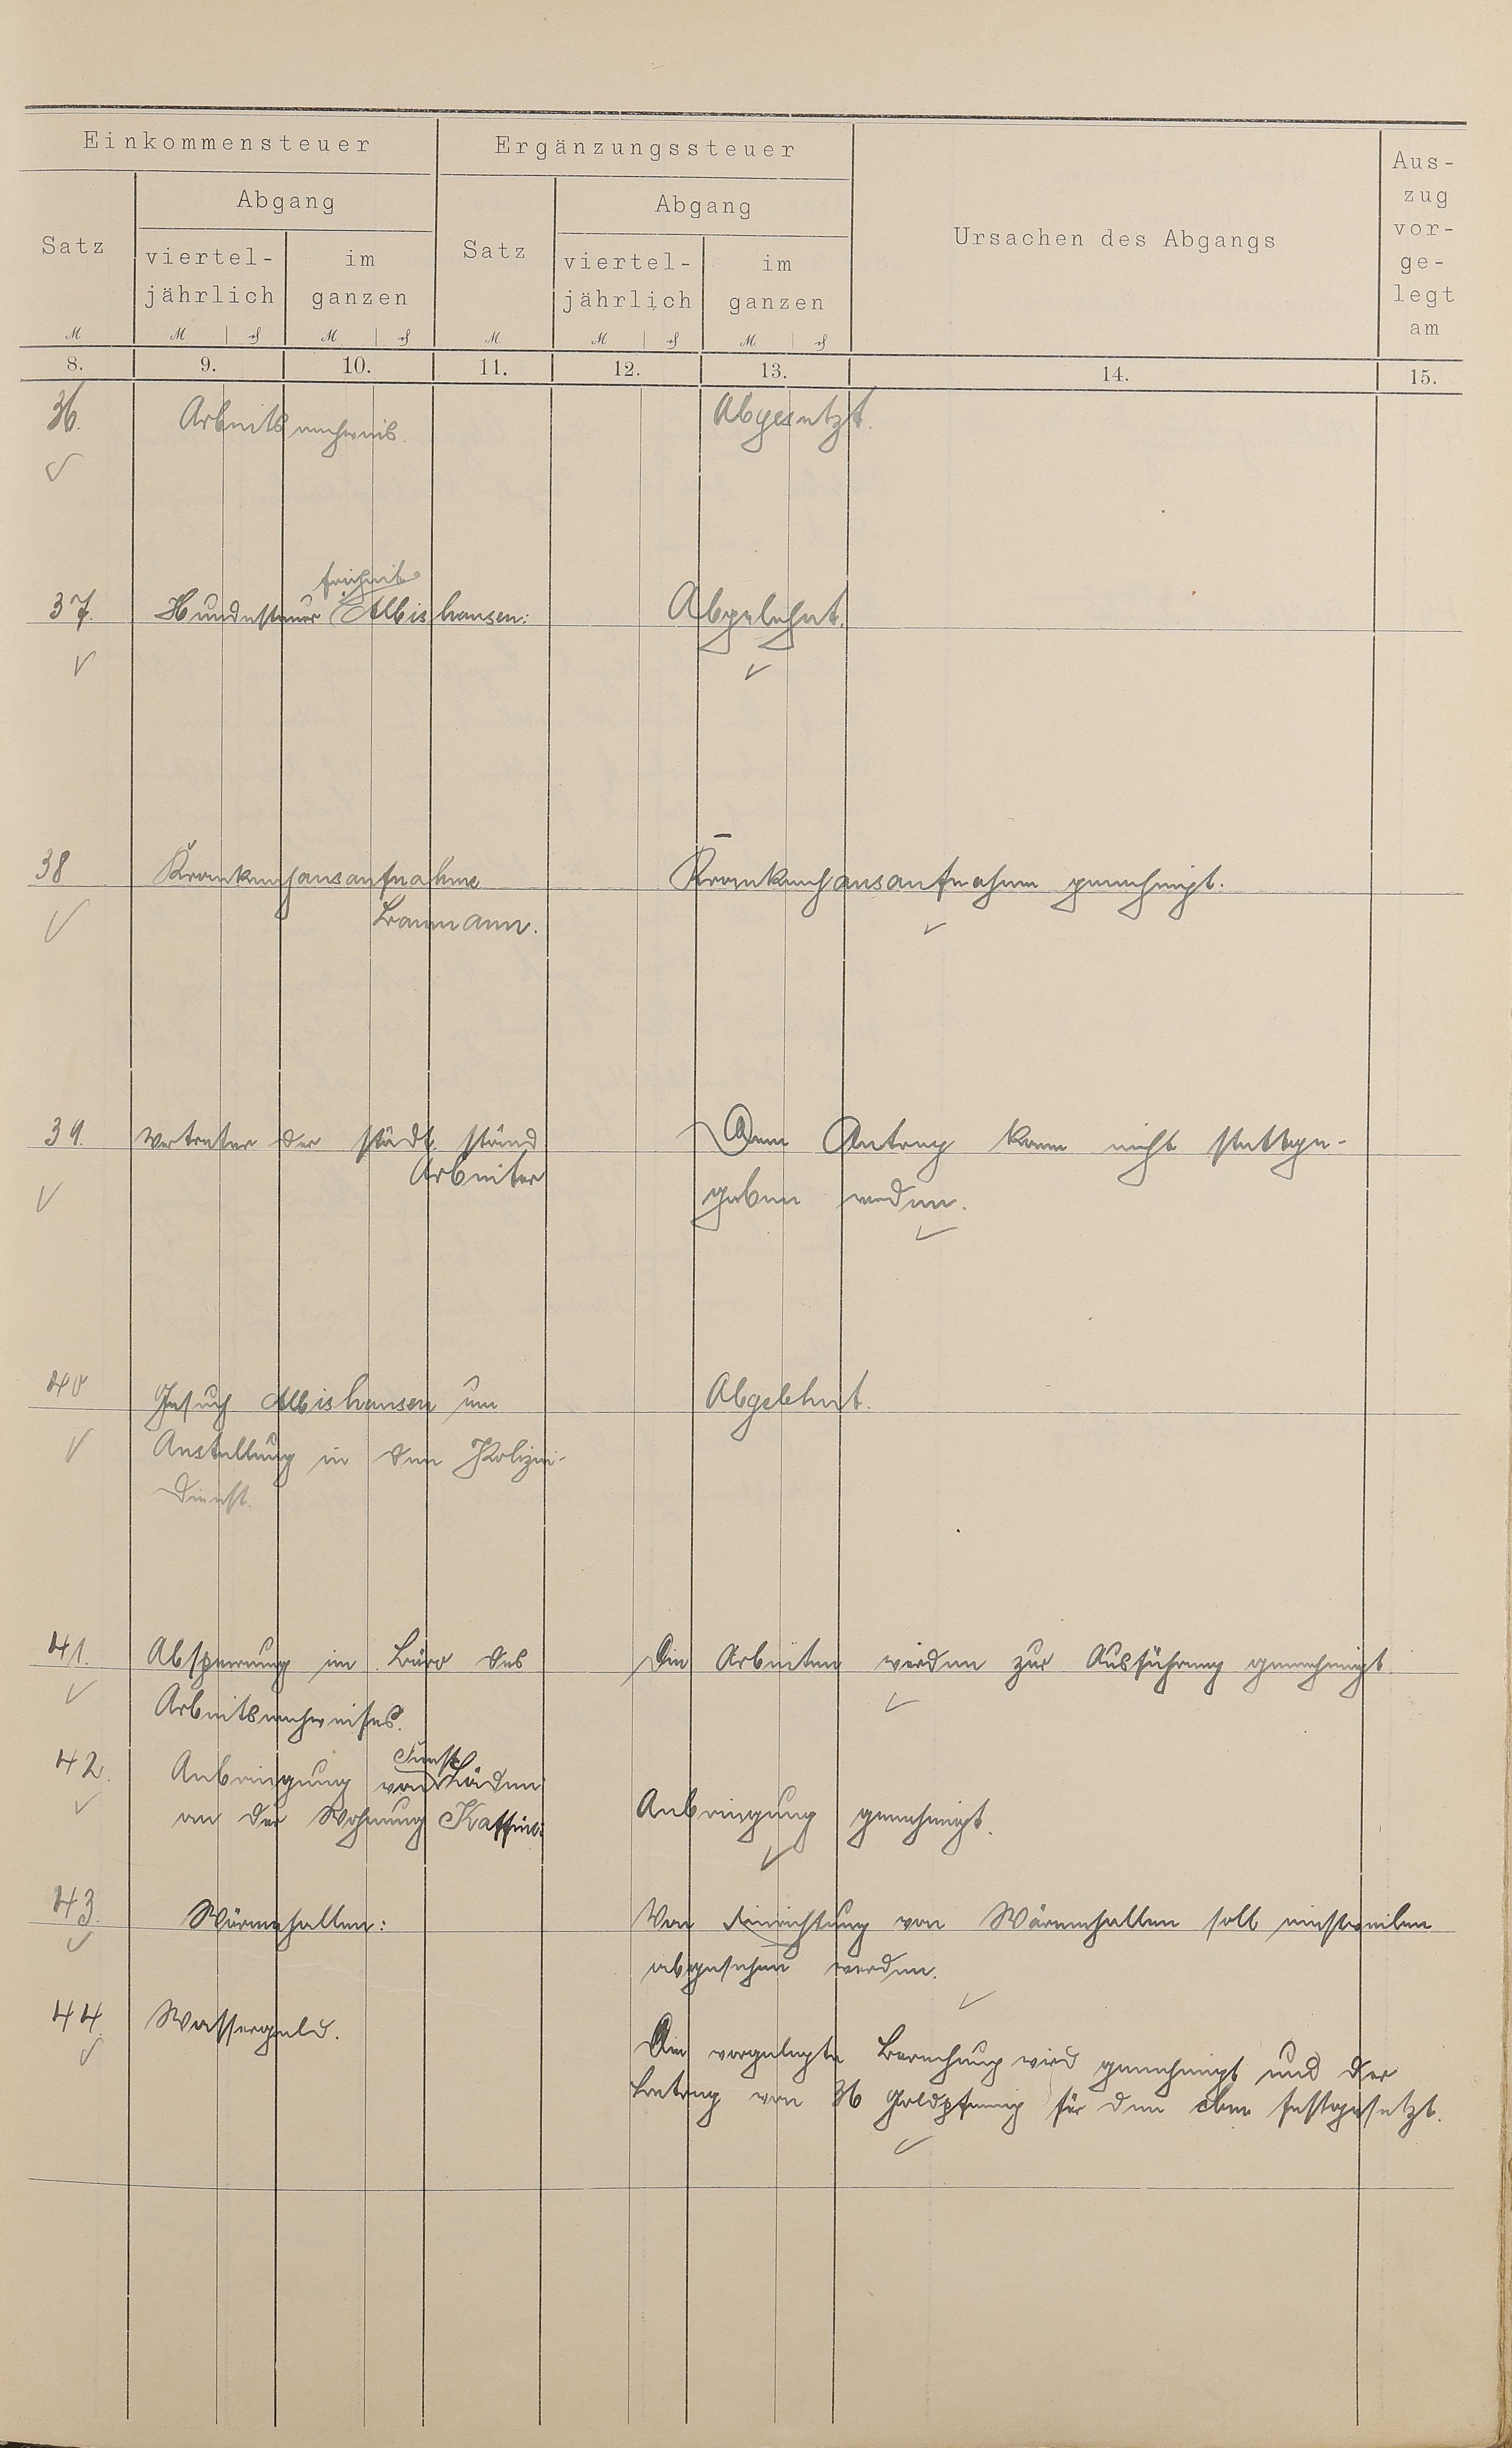 Einkommensteuer
Ergänzungssteuer
Ursachen des Abgangs
Aus-
zug
vor-
ge-
legt
am
Satz
Abgang
viertel-
jährlich
im
ganzen
Satz
Abgang
viertel-
jährlich
im
ganzen
M
M
M
M
M
M
8. 9. 10. 11. 12. 13. 14. 15.
36. Arbeitsnachweis. Abgesetzt.
freiheit
37. Hundesteuer Albishausen: Abgelehnt.
38 Krankenhausaufnahme Krankenhausaufnahme genehmigt.
Baumann.
39. Vertreter der städt. ständ Dem Antrag kann nicht stattge-
Arbeiter geben werden.
40 Gesuch Albishausen um Abgelehnt.
Anstellung in den Polizei-
dienst.
41. Absperrung im Büro des Die Arbeiten werden zur Ausführung genehmigt.
Arbeitsnachweises.
42. Anbringung von Läden
an der Wohnung Anbringung genehmigt.
43. Wärmehallen: Von Einrichtung von Wärmehallen soll einstweilen
abgesehen werden.
44. Wassergeld. Die vorgelegte Berechnung wird genehmigt und der
Betrag von 36 Goldpfennig für den cbm festgesetzt.